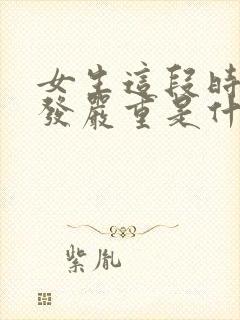 女生這段時
發嚴重是什
紫胤